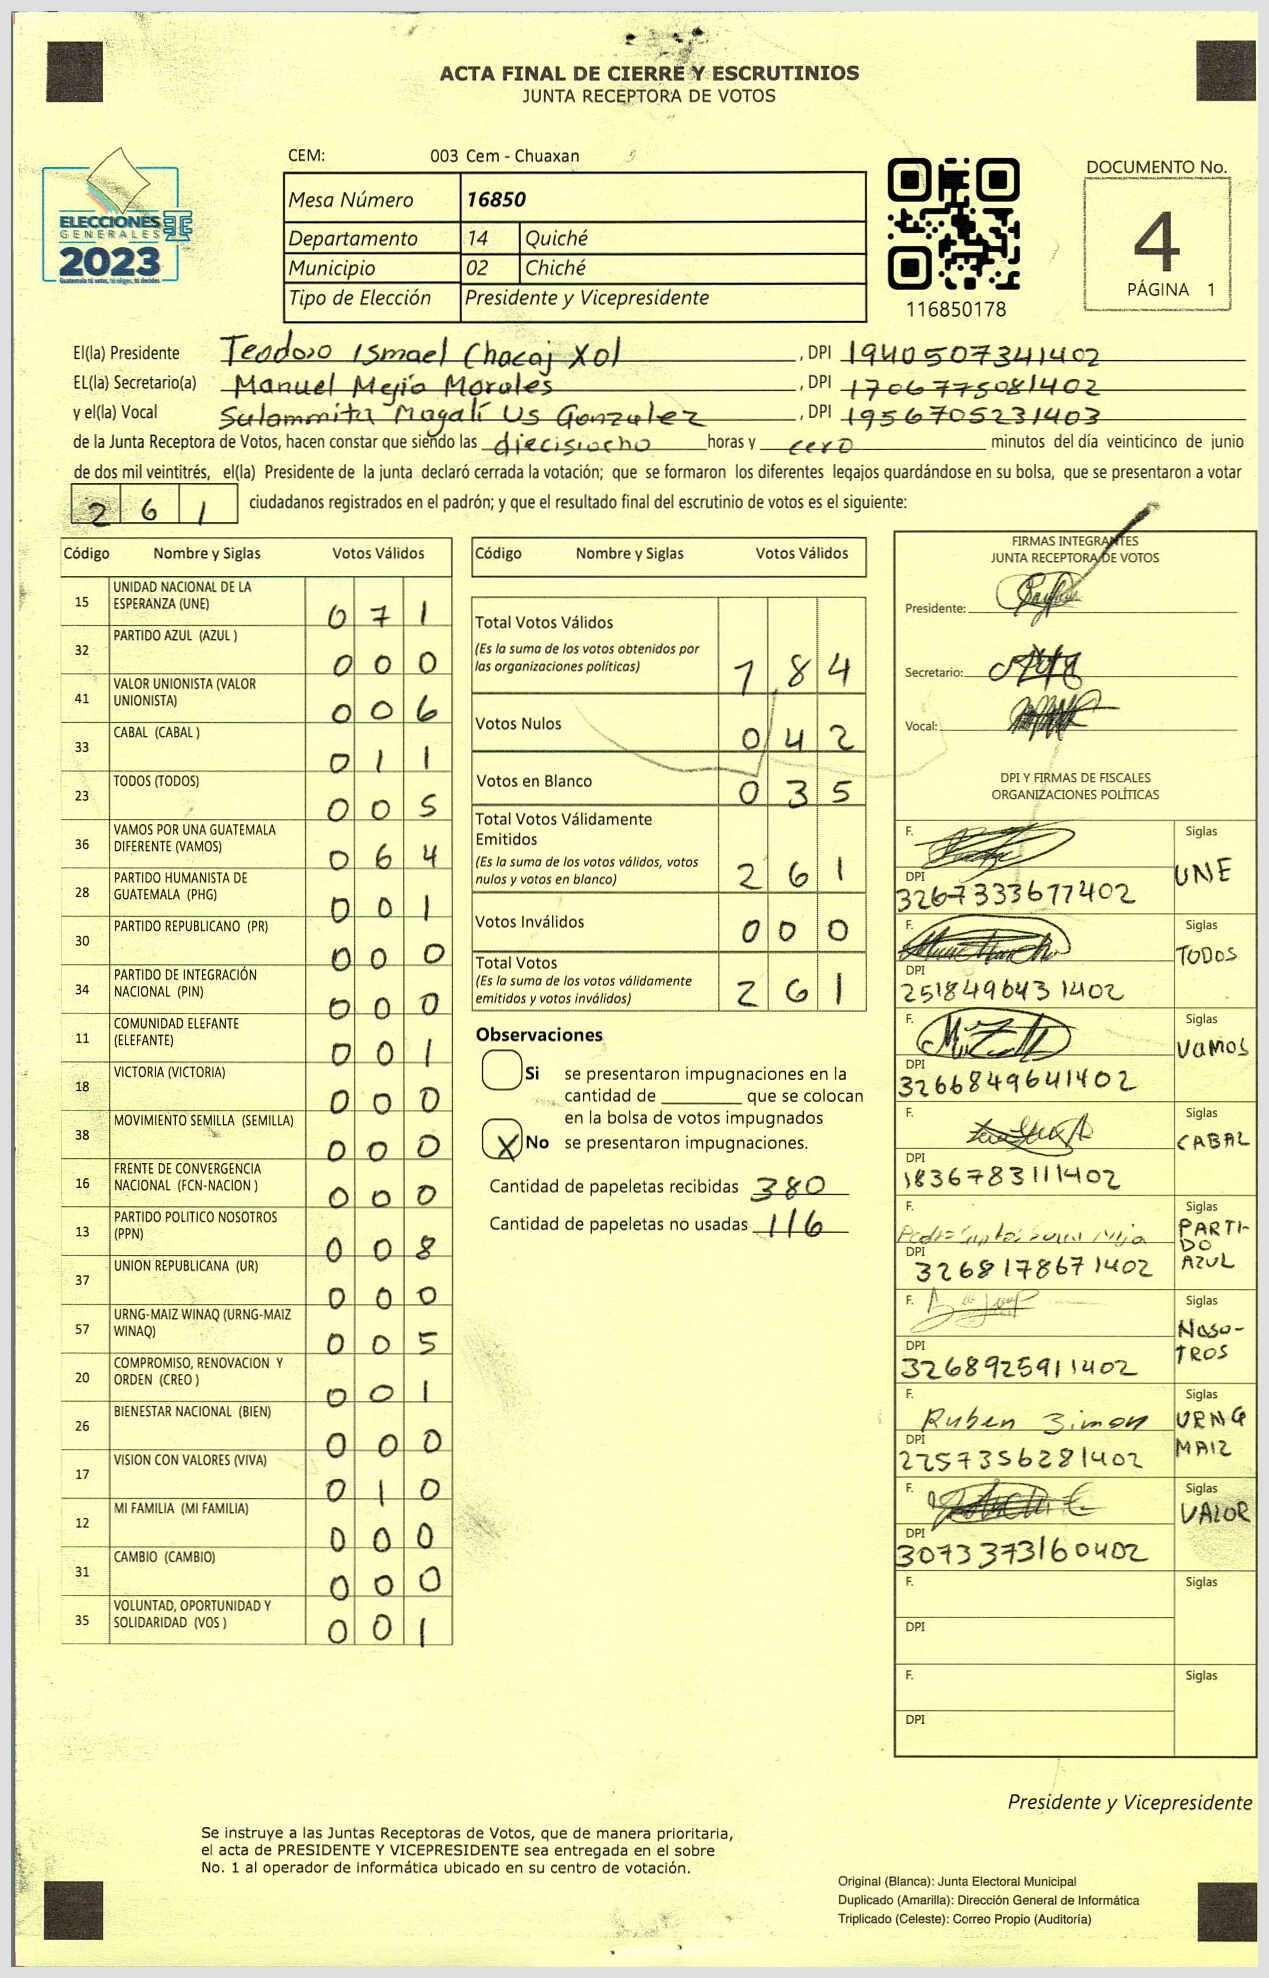 ACTA FINAL DE CIERRE Y ESCRUTINIOS
JUNTA RECEPTORA DE VOTOS
CEM: 003 Cem - Chuaxan
ELECCIONES
GENERALES
2023
Guatemala tú votas, tú eliges, tú decides
Mesa Número 16850
Departamento 14 Quiché
Municipio 02 Chiché
Tipo de Elección Presidente y Vicepresidente
116850178
DOCUMENTO No.
4
PÁGINA 1
El(la) Presidente Teodoro Ismael Chacaj Xol, DPI 1940507341402
EL(la) Secretario(a) Manuel Mejía Morales, DPI 1706775081402
y el(la) Vocal Sulammita Magalí Us Gonzalez, DPI 1956705231403
de la Junta Receptora de Votos, hacen constar que siendo las dieciseocho horas y cero minutos del día veinticinco de junio
de dos mil veintitrés, el(la) Presidente de la junta declaró cerrada la votación; que se formaron los diferentes legajos quardándose en su bolsa, que se presentaron a votar
261 ciudadanos registrados en el padrón; y que el resultado final del escrutinio de votos es el siguiente:
Código Nombre y Siglas Votos Válidos
15 UNIDAD NACIONAL DE LA ESPERANZA (UNE) 071
32 PARTIDO AZUL (AZUL ) 000
41 VALOR UNIONISTA (VALOR UNIONISTA) 006
33 CABAL (CABAL ) 011
23 TODOS (TODOS) 005
36 VAMOS POR UNA GUATEMALA DIFERENTE (VAMOS) 064
28 PARTIDO HUMANISTA DE GUATEMALA (PHG) 001
30 PARTIDO REPUBLICANO (PR) 000
34 PARTIDO DE INTEGRACIÓN NACIONAL (PIN) 000
11 COMUNIDAD ELEFANTE (ELEFANTE) 001
18 VICTORIA (VICTORIA) 000
38 MOVIMIENTO SEMILLA (SEMILLA) 000
16 FRENTE DE CONVERGENCIA NACIONAL (FCN-NACION ) 000
13 PARTIDO POLITICO NOSOTROS (PPN) 008
37 UNION REPUBLICANA (UR) 000
57 URNG-MAIZ WINAQ (URNG-MAIZ WINAQ) 005
20 COMPROMISO, RENOVACION Y ORDEN (CREO ) 001
26 BIENESTAR NACIONAL (BIEN) 000
17 VISION CON VALORES (VIVA) 010
12 MI FAMILIA (MI FAMILIA) 000
31 CAMBIO (CAMBIO) 000
35 VOLUNTAD, OPORTUNIDAD Y SOLIDARIDAD (VOS ) 001
Código Nombre y Siglas Votos Válidos
Total Votos Válidos
(Es la suma de los votos obtenidos por
las organizaciones políticas) 184
Votos Nulos 042
Votos en Blanco 035
Total Votos Válidamente
Emitidos
(Es la suma de los votos válidos, votos
nulos y votos en blanco) 261
Votos Inválidos 000
Total Votos
(Es la suma de los votos válidamente
emitidos y votos inválidos) 261
Observaciones
Si se presentaron impugnaciones en la
cantidad de ________ que se colocan
en la bolsa de votos impugnados
X No se presentaron impugnaciones.
Cantidad de papeletas recibidas 380
Cantidad de papeletas no usadas 116
FIRMAS INTEGRANTES
JUNTA RECEPTORA DE VOTOS
Presidente:
Secretario:
Vocal:
DPI Y FIRMAS DE FISCALES
ORGANIZACIONES POLÍTICAS
F. Siglas UNE
DPI 3267333677402
F. Siglas TODOS
DPI 2518496431402
F. Siglas VAMOS
DPI 3266849641402
F. Siglas CABAL
DPI 1836783111402
F. Siglas PARTI-
DO
AZUL
DPI 3268178671402
F. Siglas NOSO-
TROS
DPI 3268925911402
F. Ruben Simon Siglas URNG
MAIZ
DPI 2257356281402
F. Siglas VALOR
DPI 3073373160402
F. Siglas
DPI
F. Siglas
DPI
Presidente y Vicepresidente
Se instruye a las Juntas Receptoras de Votos, que de manera prioritaria,
el acta de PRESIDENTE Y VICEPRESIDENTE sea entregada en el sobre
No. 1 al operador de informática ubicado en su centro de votación.
Original (Blanca): Junta Electoral Municipal
Duplicado (Amarilla): Dirección General de Informática
Triplicado (Celeste): Correo Propio (Auditoría)